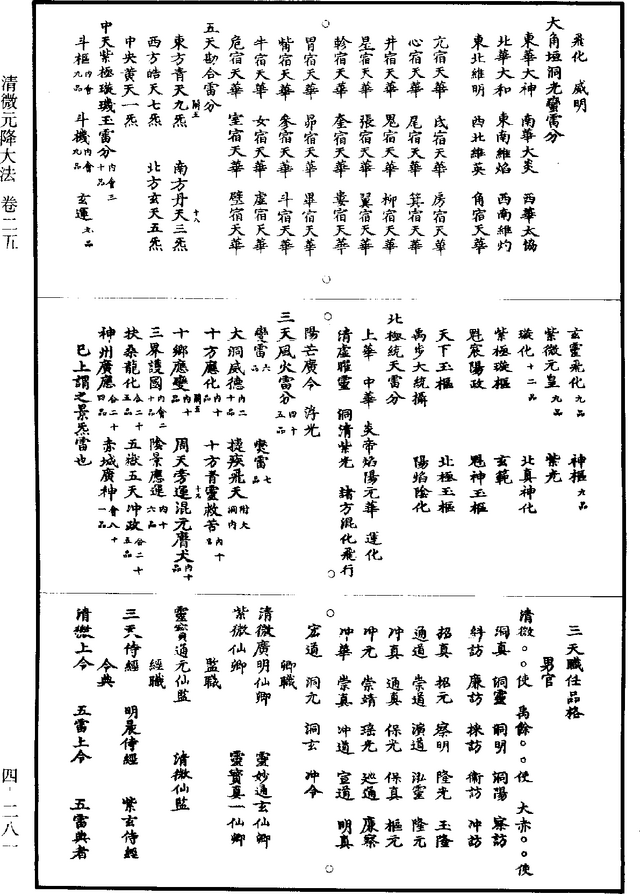 清微元降大法　卷二五
四－二八一
飛化　威明
大角垣洞光蠻雷分
東華大神　南華大炎　西華太協
北華大和　東南維焰　西南維灼
東北維明　西北維英　角宿天華
亢宿天華　氐宿天華　房宿天華
心宿天華　尾宿天華　箕宿天華
井宿天華　鬼宿天華　柳宿天華
星宿天華　張宿天華　翼宿天華
軫宿天華　奎宿天華　婁宿天華
胃宿天華　昴宿天華　畢宿天華
觜宿天華　參宿天華　斗宿天華
牛宿天華　女宿天華　虛宿天華
危宿天華　室宿天華　壁宿天華
五天勘合雷分
東方青天九炁　南方丹天三炁
西方皓天七炁　北方玄天五炁
中央黃天一炁
中天紫極璇璣玉雷分 內會二十品
斗樞 內會九品　斗機 內會九品　玄運 九品
玄靈飛化 九品　神樞 九品
紫微元皇 九品　紫光
璇化 十二品　北真神化
紫極璇樞　玄範
魁宸陽政　魁神玉樞
天下玉樞　北極玉樞
禹步大統攝　陽焰陰化
北極統天雷分
上華　中華　炎帝焰陽元華　運化
清虛曜靈　洞清紫光　諸方混化飛行
陽芒廣令　浮光
三天風火雷分 四十五品
蠻雷 六品　爕雷 七品
大洞威德 內二十品　捷疾飛天 附大洞內
十方應化 內十品　十方青靈救苦 內十
十鄉應變 內十品　周天旁運混元膺犬 內十品
三界護國 內會二十品　陰景應運 內十六品
扶桑龍化 合二十五品　五嶽五天冲政 合二十五品
神州廣應 合二十四品　赤城廣神 會八十一品
已上謂之景炁雷也
三天職任品格
男官
清微○○使　禹餘○○使　大赤○○使
洞真　洞靈　洞明　洞陽　察訪
糾訪　廉訪　採訪　衛訪　冲訪
招真　招元　察明　隆光　玉隆
通道　崇道　演道　泓靈　隆元
冲真　通真　保光　保真　樞元
冲元　崇靖　瑤光　巡通　廉察
冲華　崇真　冲道　宣道　明真
宏道　洞元　洞玄　冲令
卿職
清微廣明仙卿　靈妙通玄仙卿
紫微仙卿　靈寶真一仙卿
監職
靈寶通元仙監　清微仙監
經職
三天侍經　明晨侍經　紫玄侍經
令典
清微上令　五雷上令　五雷典者